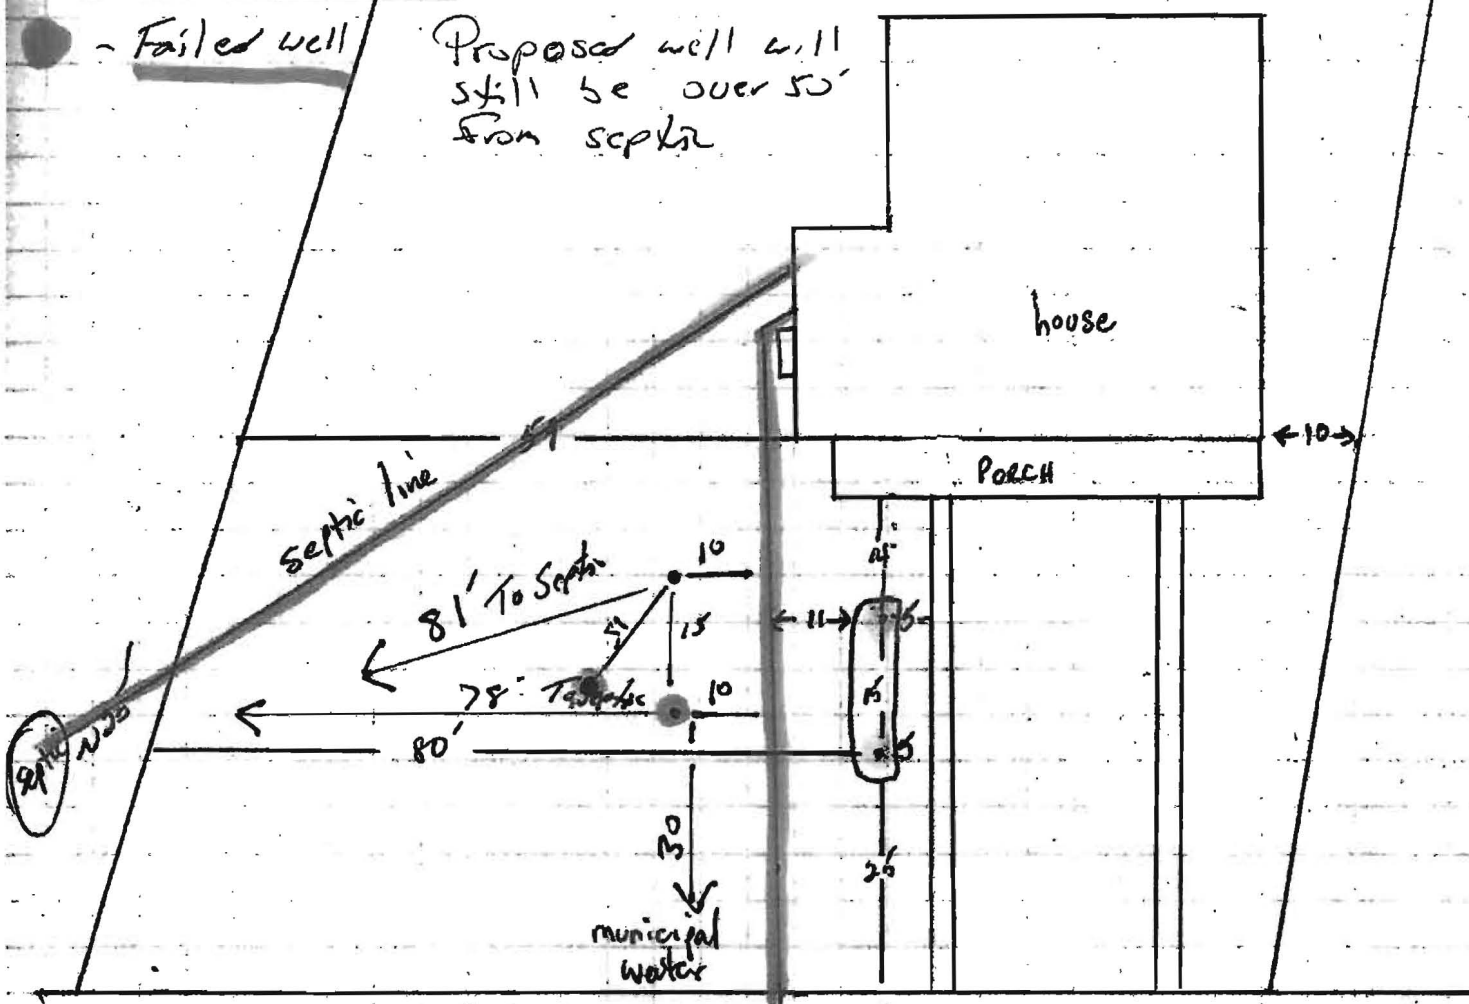 - Failed well
Proposed well will
still be over 50'
from septic
house
10
PORCH
57
septic line
10
81' To Septic
15
11
5
78'
10
15
80'
5
septic
30
25
municipal
water